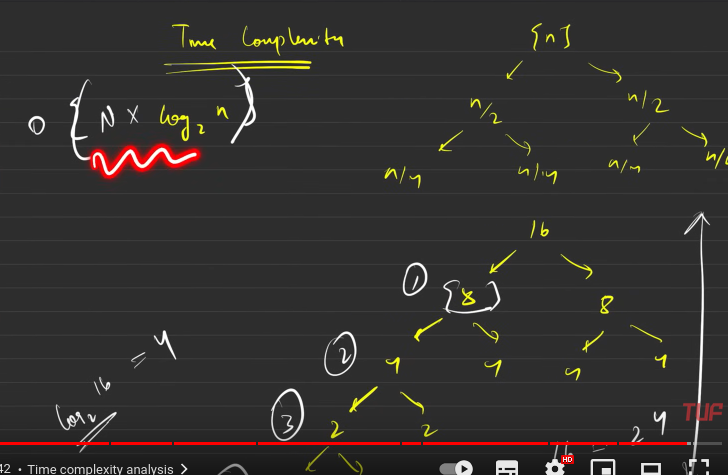 Time Complexity
O { N × log₂ n }
{n}
n/2 n/2
n/4 n/4 n/4 n/4
16
① {8} 8
② 4 4 4 4
③ 2 2
log₂ 16 = 4
16 = 2 4
TUF
42 • Time complexity analysis >
HD